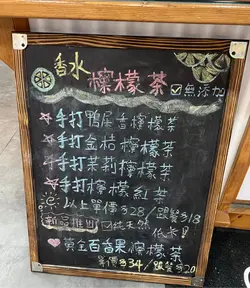 香水
檸檬茶 ☑無添加
☆手打鴨屎香檸檬茶
☆手打金桔檸檬茶
☆手打茉莉檸檬茶
☆手打檸檬紅茶
以上單價$28/跟餐$18
新品推出 ☑純天然
低卡
♥黃金百香果檸檬茶
單價$34/跟餐$20